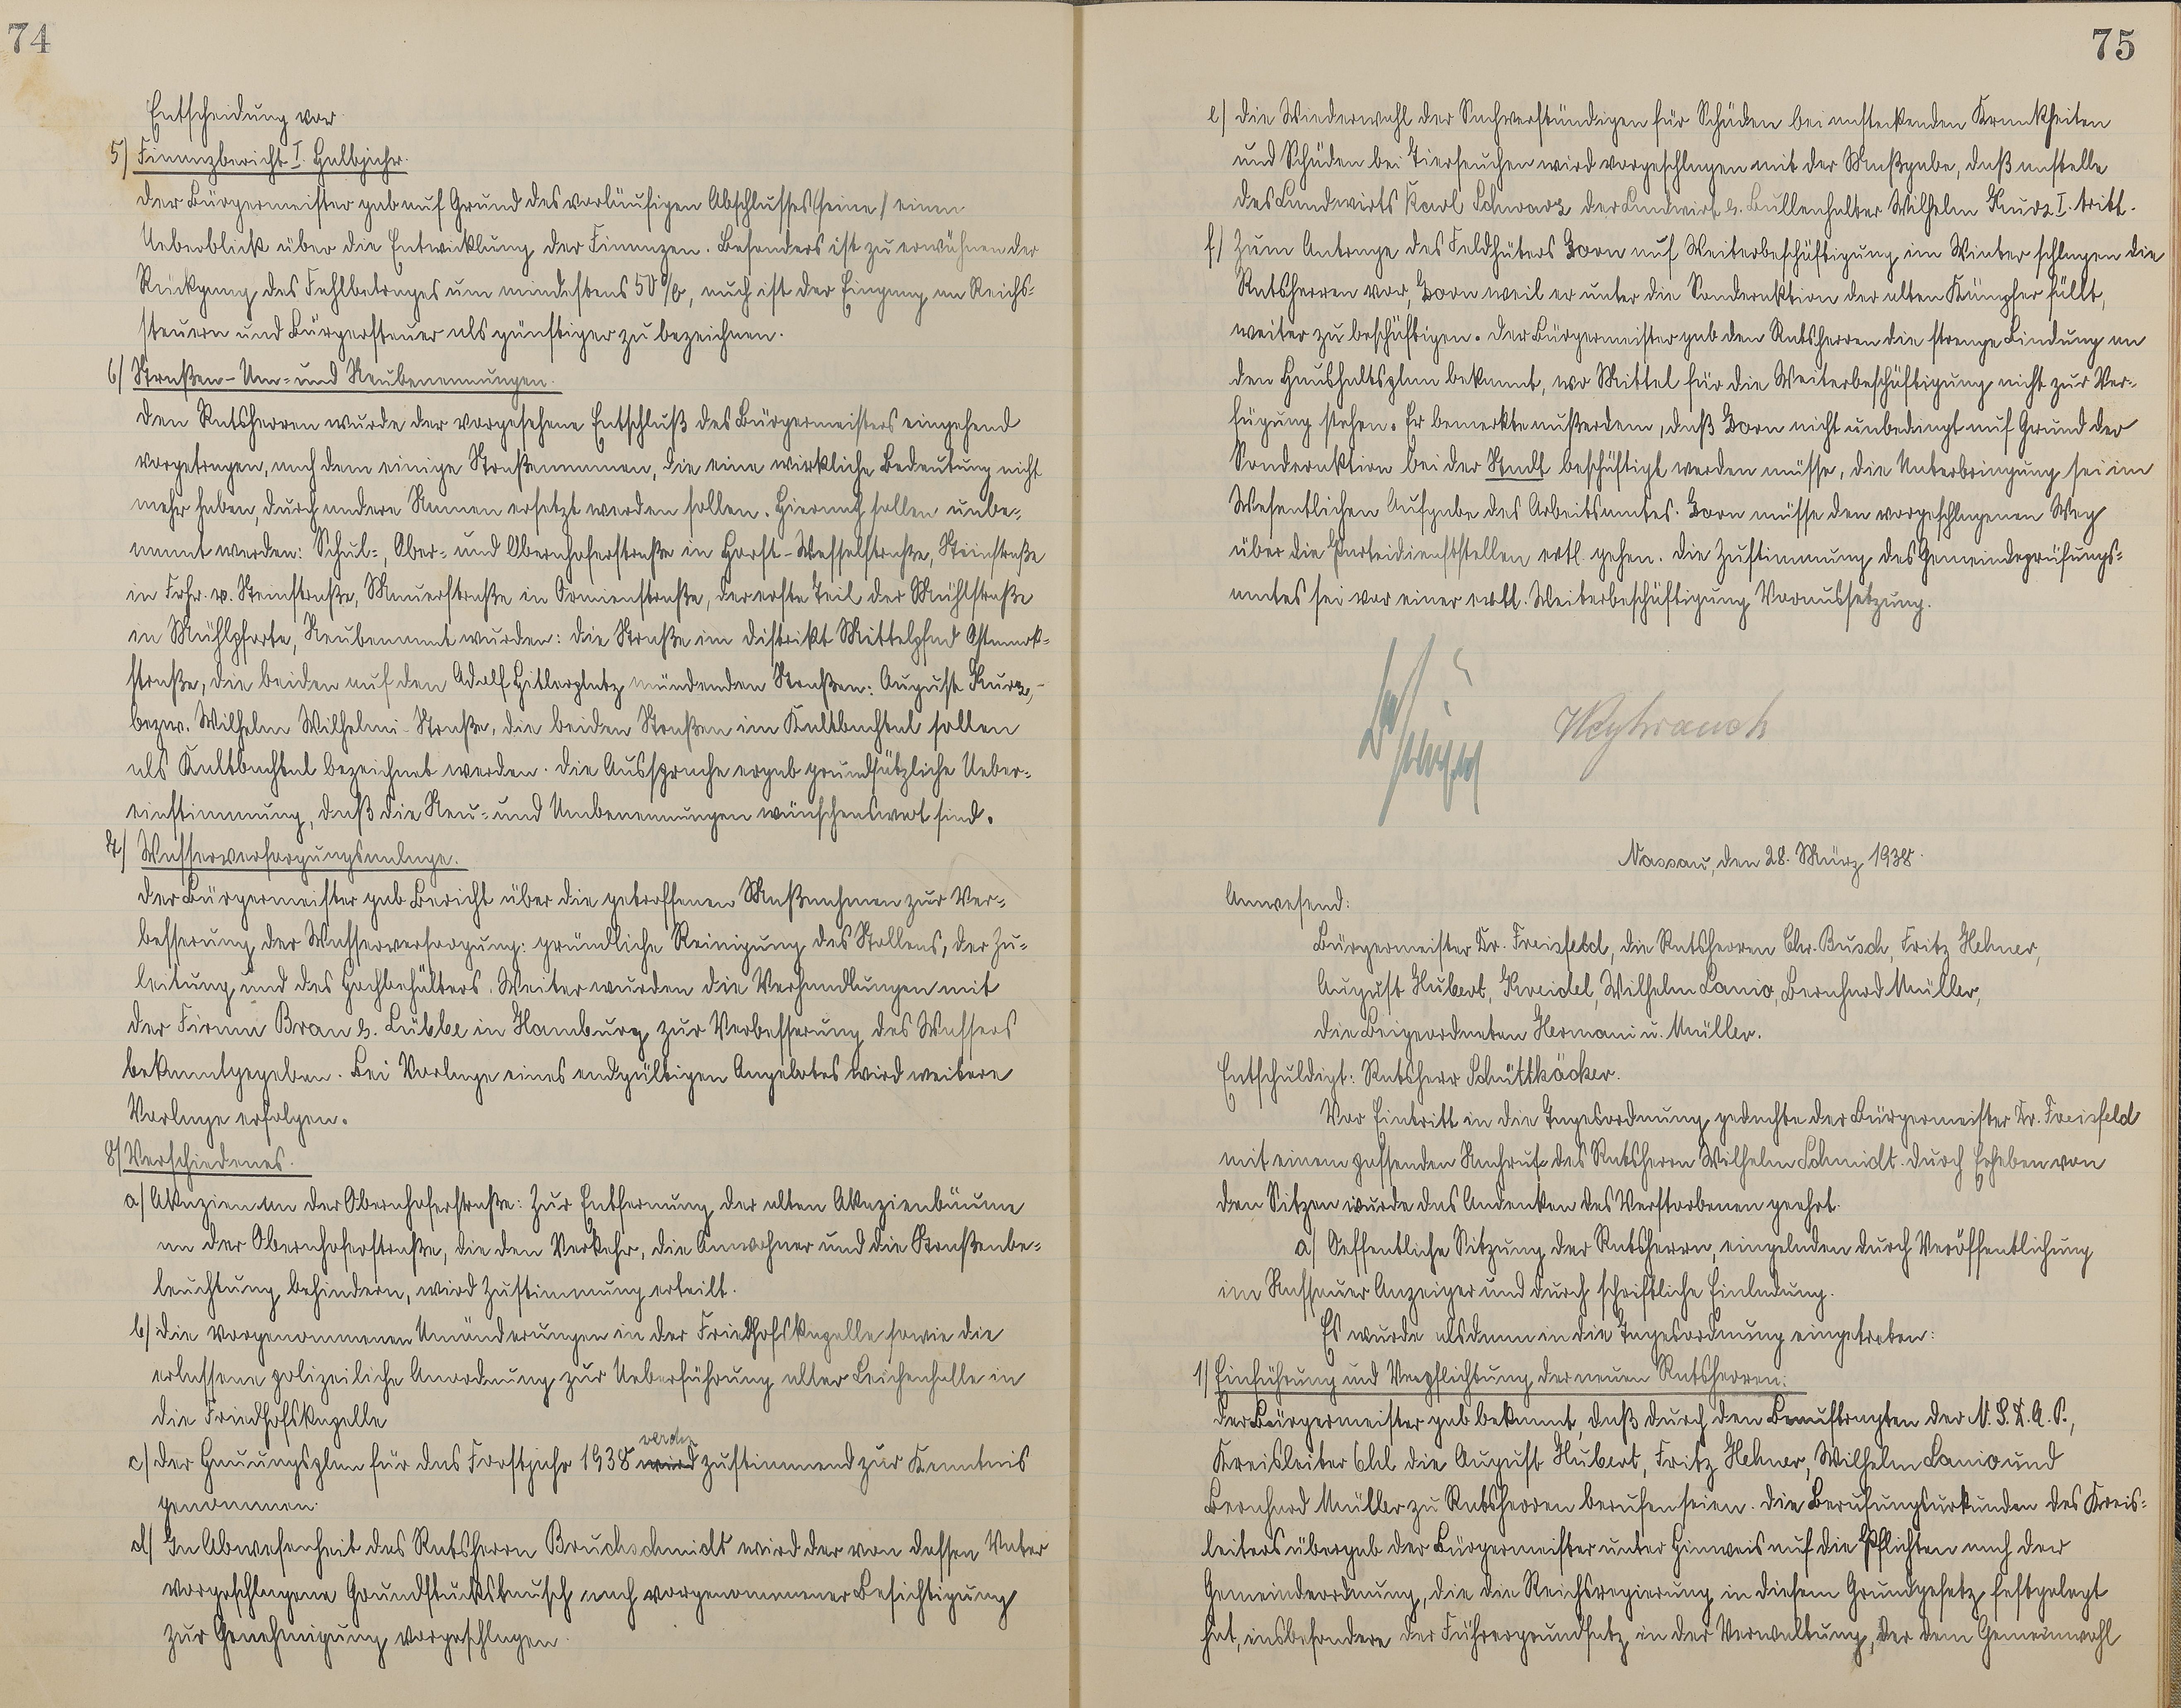 74
Entscheidung vor
5) Finanzbericht I. Halbjahr.
Der Bürgermeister gab auf Grund des vorläufigen Abschlusses (seine) einen
Ueberblick über die Entwicklung der Finanzen. Besonders ist zu erwähnen der
Rückgang des Fehlbetrages um mindestens 50%, auch ist der Eingang an Reichs-
steuern und Bürgersteuer als günstiger zu bezeichnen.
6) Straßen- Um- und Neubenennungen.
Den Ratsherren wurde der vorgesehene Entschluß des Bürgermeisters eingehend
vorgetragen, nach dem einige Straßennamen, die eine wirkliche Bedeutung nicht
mehr haben, durch andere Namen ersetzt werden sollen. Hiernach sollen unbe-
nannt werden: Schul-, Ober- und Obernhoferstraße in Horst-Wesselstraße, Steinstraße
in Frhr. v. Steinstraße, Mauerstraße in Armienstraße, der erste Teil der Mühlstraße
in Mühlpforte, Neubenannt wurden: die Straße im Distrikt Mittelpfad Ostmark-
straße, die beiden auf den Adolf Hitlerplatz mündenden Straßen: August Kurz,-
bezw. Wilhelm Wilhelmi-Straße, die beiden Straßen im Kaltbachtal sollen
als Kaltbachtal bezeichnet werden. Die Aussprache ergab grundsätzliche Ueber-
einstimmung, daß die Neu- und Umbenennungen wünschenswert sind.
7) Wasserversorgungsanlage.
Der Bürgermeister gab Bericht über die getroffenen Maßnahmen zur Ver-
besserung der Wasserversorgung: gründliche Reinigung des Stollens, der Zu-
leitung und des Hochbehälters. Weiter wurden die Verhandlungen mit
der Firma Bran & Lübbe in Hamburg zur Verbesserung des Wassers
bekanntgegeben. Bei Vorlage eines endgültigen Angebotes wird weitere
Vorlage erfolgen.
8) Verschiedenes.
a) Akazien an der Obernhoferstraße: Zur Entfernung der alten Akazienbäume
an der Obernhoferstraße, die den Verkehr, die Anwohner und die Straßenbe-
leuchtung behindern, wird Zustimmung erteilt.
b) die vorgenommenen Umänderungen in der Friedhofskapelle sowie die
erlassene polizeiliche Anordnung zur Ueberführung aller Leichenhalle in
die Friedhofskapelle
c) der Hauungsplan für das Forstjahr 1938 wird werden zustimmend zur Kenntnis
genommen.
d) In Abwesenheit des Ratsherrn Bruchschmidt wird der von dessen Vater
vorgeschlagene Grundstückstausch nach vorgenommener Besichtigung
zur Genehmigung vorgeschlagen.
75
e) die Wiederwahl der Sachverständigen für Schäden bei ansteckenden Krankheiten
und Schäden bei Tierseuchen wird vorgeschlagen mit der Maßgabe, daß anstelle
des Landwirts Karl Schwarz der Landwirt & Bullenhalter Wilhelm Kurz I. tritt.
f) Zum Antrage des Feldhüters Zorn auf Weiterbeschäftigung im Winter schlagen die
Ratsherren vor, Zorn weil er unter die Sonderaktion der alten Kämpfer fällt,
weiter zu beschäftigen. Der Bürgermeister gab den Ratsherren die strenge Bindung an
den Haushaltsplan bekannt, wo Mittel für die Weiterbeschäftigung nicht zur Ver-
fügung stehen. Er bemerkte außerdem, daß Zorn nicht unbedingt auf Grund der
Sonderaktion bei der Stadt beschäftigt werden müsse, die Unterbringung sei im
Wesentlichen Aufgabe des Arbeitsamtes. Zorn müsse den vorgeschlagenen Weg
über die Parteidienststellen evtl. gehen. Die Zustimmung des Gemeindeprüfungs-
amtes sei vor einer evtl. Weiterbeschäftigung Voraussetzung.
Weyhrauch
Nassau, den 28. März 1938.
Anwesend:
Bürgermeister Dr. Freisfeld, die Ratsherren Chr. Busch, Fritz Hehner,
August Hubert, Kreidel, Wilhelm Lanio, Bernhard Müller,
die Beigeordneten Hermani u. Müller.
Entschuldigt: Ratsherr Schüttkäcker.
Vor Eintritt in die Tagesordnung gedachte der Bürgermeister Dr. Freisfeld
mit einem passenden Nachrufe des Ratsherrn Wilhelm Schmidt. Durch Erheben von
den Sitzen wurde das Andenken des Verstorbenen geehrt.
a) Oeffentliche Sitzung der Ratsherrn, eingeladen durch Veröffentlichung
im Nassauer Anzeiger und durch schriftliche Einladung.
Es wurde alsdann in die Tagesordnung eingetreten:
1) Einführung und Verpflichtung der neuen Ratsherren:
Der Bürgermeister gab bekannt, daß durch den Beauftragten der N.S.D.A.P.,
Kreisleiter die August Hubert, Fritz Hehner, Wilhelm Lanio und
Bernhard Müller zu Ratsherren berufen seien. Die Berufungsurkunden des Kreis-
leiters übergab der Bürgermeister unter Hinweis auf die Pflichten nach der
Gemeindeordnung, die die Reichsregierung in diesem Grundgesetz festgelegt
hat, insbesondere der Führergrundsatz in der Verwaltung, der dem Gemeinwohl